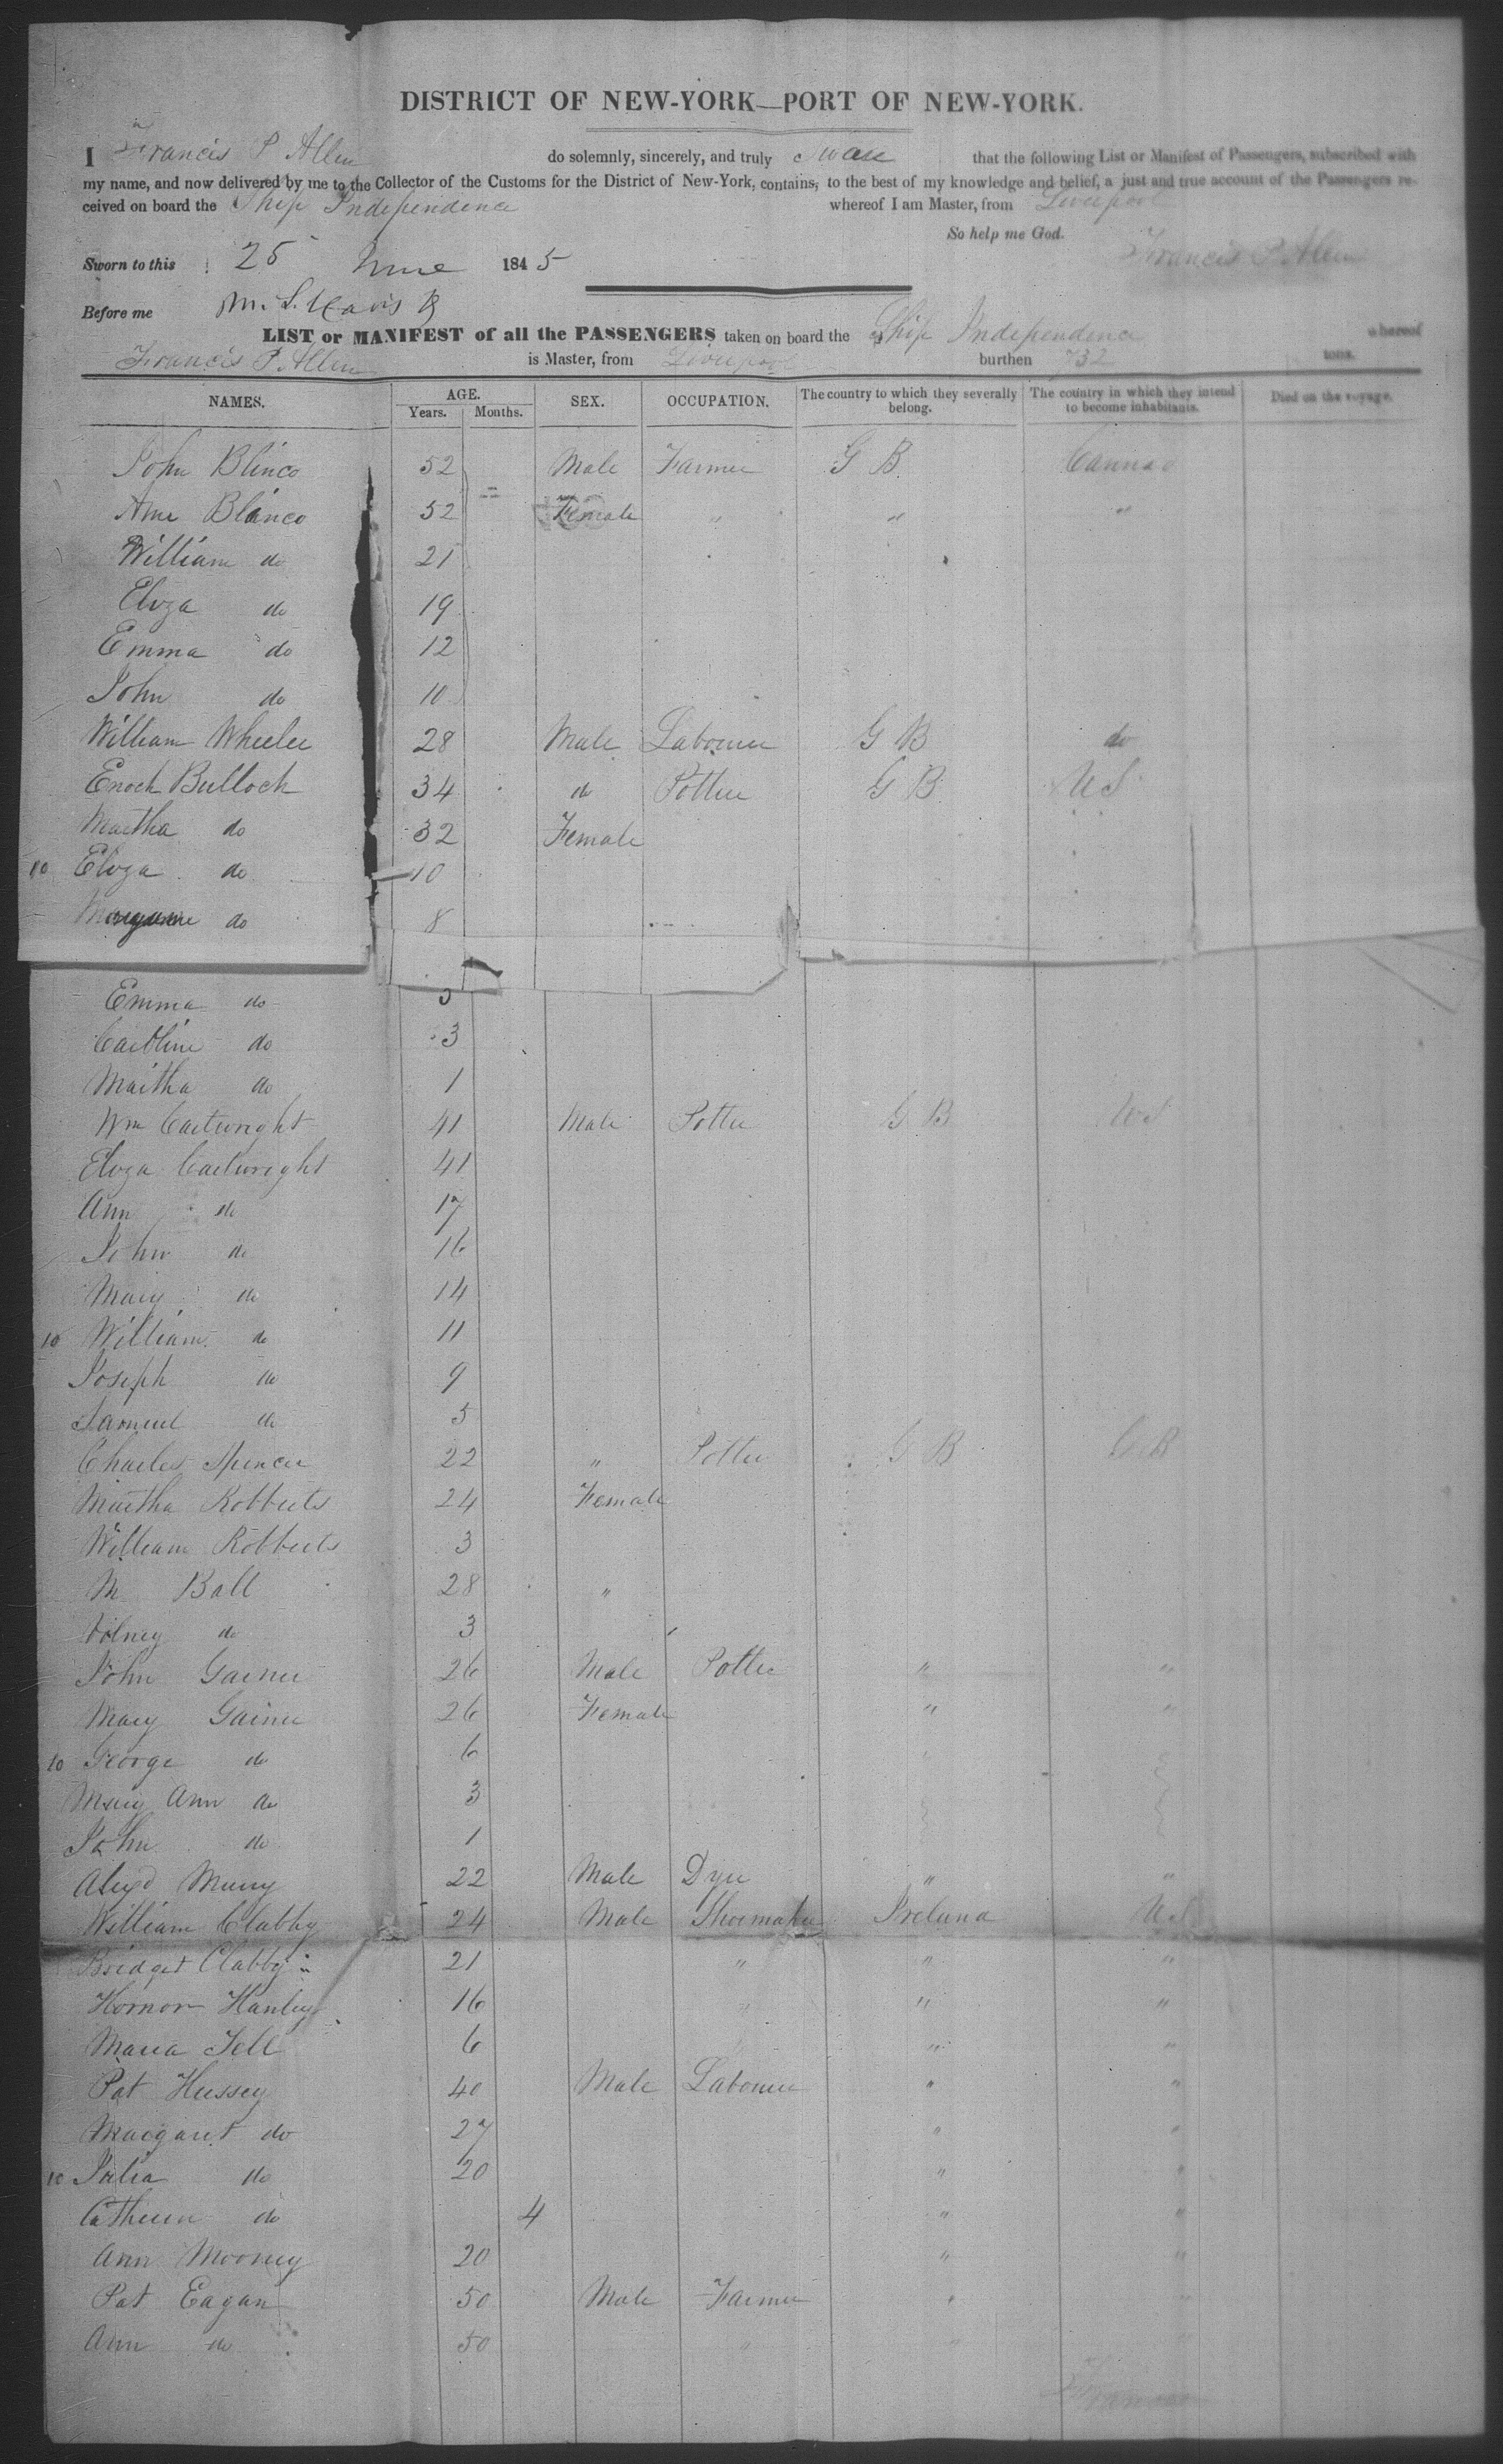 DISTRICT OF NEW-YORK—PORT OF NEW-YORK.
I Francis P Allen do solemnly, sincerely, and truly Swear that the following List or Manifest of Passengers, subscribed with
my name, and now delivered by me to the Collector of the Customs for the District of New-York, contains, to the best of my knowledge and belief, a just and true account of the Passengers re-
ceived on board the Ship Independence whereof I am Master, from Liverpool
So help me God.
Francis P Allen
Sworn to this 25 June 1845
Before me M. S.
LIST or MANIFEST of all the PASSENGERS taken on board the Ship Independence whereof
Francis P Allen is Master, from Liverpool burthen 732 tons.
NAMES. AGE. SEX. OCCUPATION. The country to which they severally belong. The country in which they intend to become inhabitants. Died on the voyage.
Years. Months.
John Blinco 52 Male Farmer G B Cannad
Ann Blinco 52 Female " " "
William do 21
Eliza do 19
Emma do 12
John do 10
William Wheeler 28 Male Labourer G B do
Enoch Bullock 34 do Potter G B U S
Martha do 32 Female
10 Eliza do 10
do 8
Emma do 5
Caroline do 3
Martha do 1
Wm Cartwright 41 Male Potter G B U S
Eliza Cartwright 41
Ann do 17
John do 16
Mary do 14
10 William do 11
Joseph do 9
Samuel do 5
Charles Spencer 22 " Potter G B G B
Martha Robberts 24 Female
William Robberts 3
M Ball 28 "
do 3
John Garner 26 Male Potter " "
Mary Garner 26 Female " "
10 George do 6
Mary Ann do 3
John do 1
Alexd Murry 22 Male Dyer " "
William Clabby 24 Male Shoemaker Ireland U S
Bridget Clabby 21 " " "
Hornor Hanley 16 " "
Maria Tell 6 " "
Pat Hussey 40 Male Labourer " "
Margaret do 27 " "
10 Julia do 20 " "
Catheren do 4 " "
Ann Mooney 20 " "
Pat Eagan 50 Male Farmer " "
Ann do 50 " "
Francis